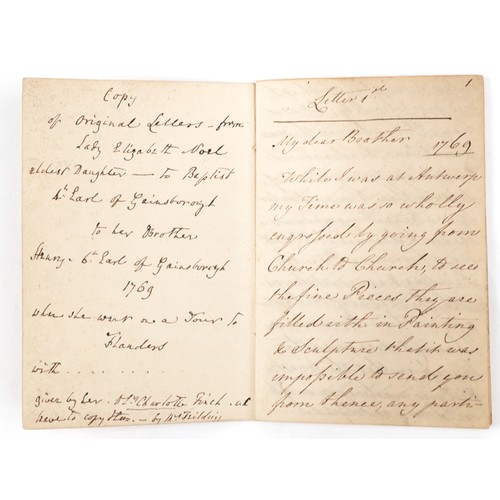 Copy
of Original Letters - from
Lady Elizabeth Noel
eldest Daughter — to Baptist
4th Earl of Gainsborough
to her Brother
Henry - 6th Earl of Gainsborough
1769
when she went on a Tour to
Flanders
with . . . . . . . .
given by her Charlotte Finch
to copy - by Mrs Fielding
1
Letter 1st
My dear Brother 1769
While I was at Antwerp
my Time was so wholly
engrossed by going from
Church to Church, to see
the fine Pieces they are
filled with in Painting
& Sculpture that it was
impossible to send you
from thence, any parti-